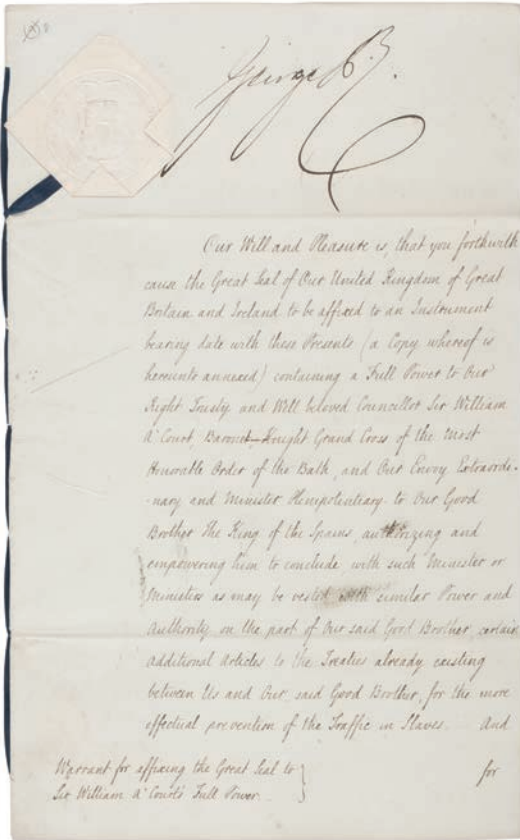 George R.
Our Will and Pleasure is, that you forthwith
cause the Great Seal of Our United Kingdom of Great
Britain and Ireland to be affixed to an Instrument
bearing date with these Presents (a Copy whereof is
hereunto annexed) containing a Full Power to Our
Right Trusty and Well beloved Councillor Sir William
a' Court, Baronet, Knight Grand Cross of the Most
Honorable Order of the Bath, and Our Envoy Extraordi-
-nary and Minister Plenipotentiary to Our Good
Brother The King of the Spains, authorizing and
empowering him to conclude with such Minister or
Ministers as may be vested with similar Power and
Authority on the part of Our said Good Brother, certain
additional Articles to the Treaties already existing
between Us and Our said Good Brother, for the more
effectual prevention of the Traffic in Slaves. And
for
Warrant for affixing the Great Seal to
Sir William a' Court's Full Power.